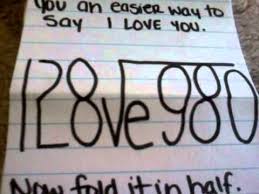 you an easier way to
say I LOVE YOU.
128√e980
Now fold it in half.